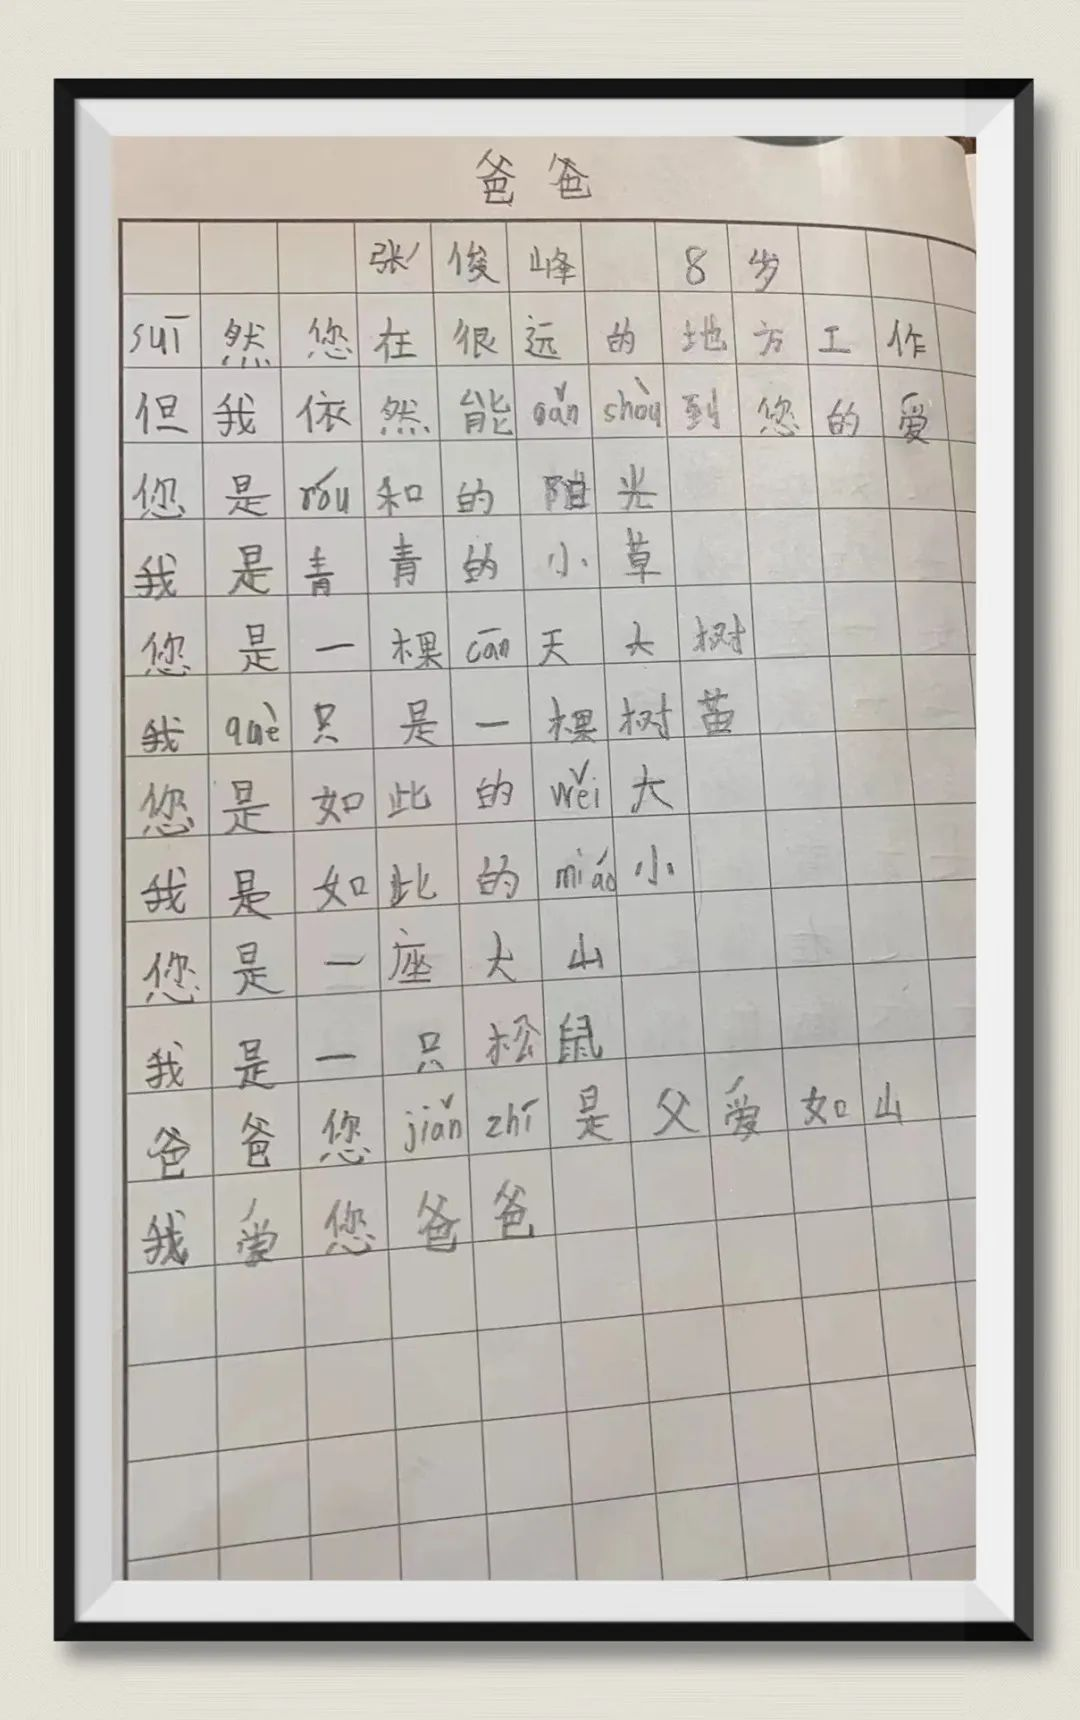 爸爸
张俊峰 8岁
suī然您在很远的地方工作
但我依然能gǎn shòu到您的爱
您是róu和的阳光
我是青青的小草
您是一棵cān天大树
我què只是一棵树苗
您是如此的wěi大
我是如此的miáo小
您是一座大山
我是一只松鼠
爸爸您jiǎn zhí是父爱如山
我爱您爸爸